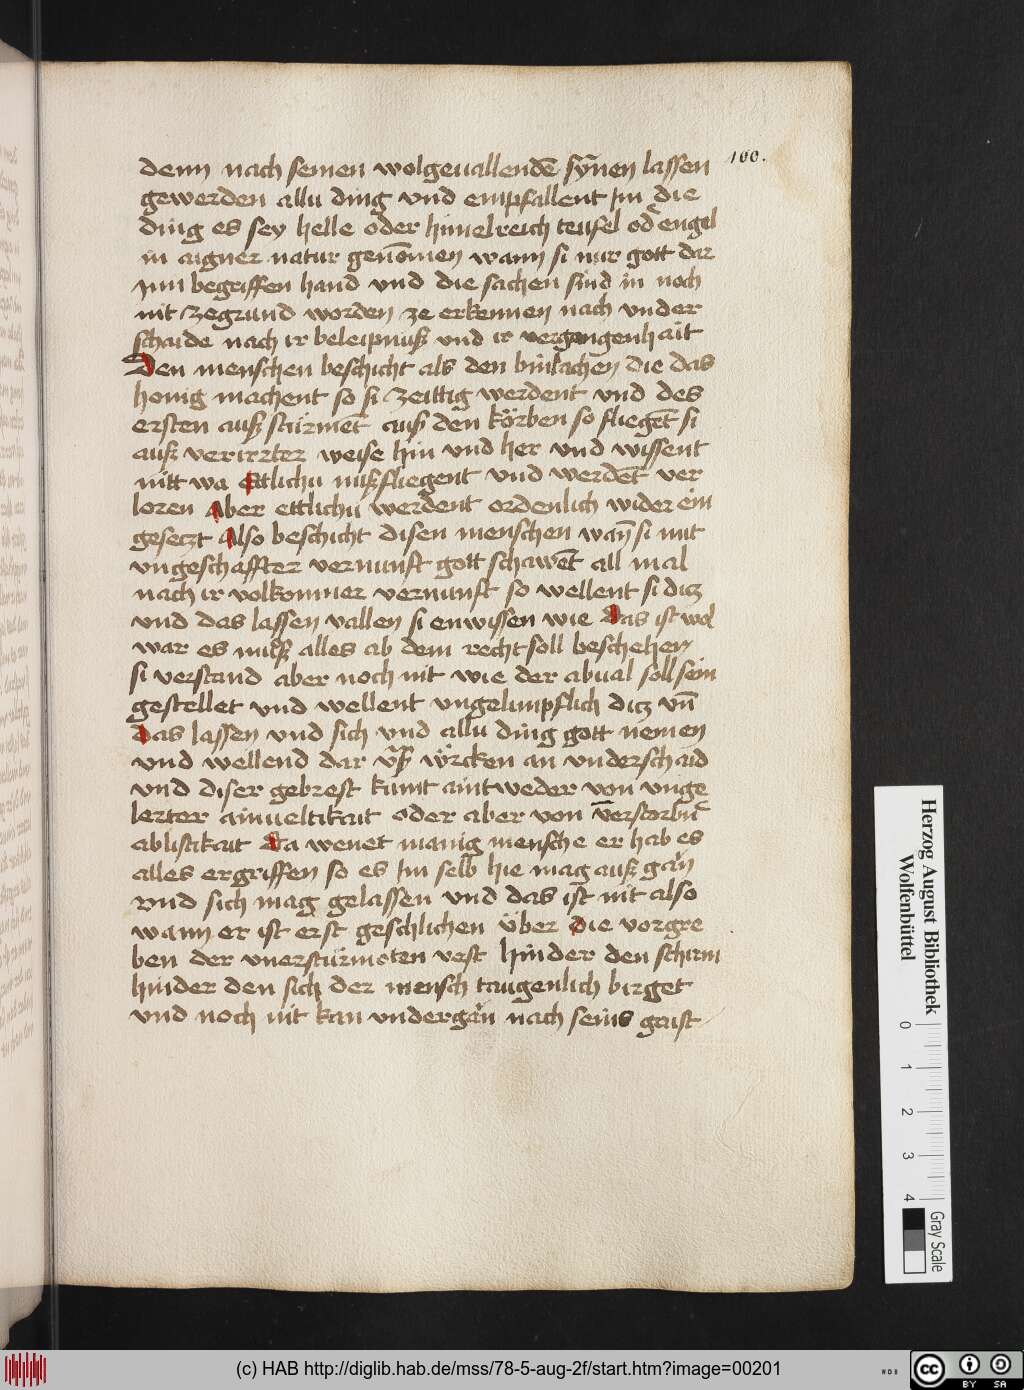 160.
denn nach seinen wolgeuallendē sÿnen lassen
gewerden allu ding vnd empfallent Im die
ding es sey helle oder himelreich teufel od̄ engel
in aigner natur genōmen wann si nur gott dar
ynn begriffen hand vnd die sachen sind in noch
nit zegrund worden ze erkennen nach vnder
schaide nach ir beleipnuß vnd ir vergangenhait
Den menschen beschicht als den binlachen die das
honig machent so si zeittig werdent vnd des
ersten auß stürmet̄ auß den körben so flieget̄ si
auß verirrter weise hin vnd her vnd wissent
nitt wa Ettlichu mißfliegent vnd werdet̄ ver
loren Aber ettlichu werdent ordenlich wider ein
gesetzt Also beschicht disen menschen wan̄ si mit
vngeschaffter vernunft gott schawet̄ all mal
nach ir volkomner vernunft so wellent si ditz
vnd das lassen vallen si enwissen wie das ist wol
war es muß alles ab dem recht soll beschehen
si verstand aber noch nit wie der abual soll sein
gestellet vnd wellent vngelimpflich ditz vn̄
das lassen vnd sich vnd allu ding gott nemen
vnd wellend dar vß würcken an vnderschaid
vnd diser gebrest kumt aintweder von vnge
lerter ainueltikait oder aber von verstorbn̄
ablistikait Da wenet manig mensche er hab es
alles ergriffen so es Im selb hie mag auß gān
vnd sich mag gelassen vnd das ist nit also
wann er ist erst geschlichen über die vorgre
ben der vnersturmoten vest hinder den schirm
hinder den sich der mensch taugenlich birget
vnd noch nit kan vndergān nach seins gaist
Herzog August Bibliothek
Wolfenbüttel
0 1 2 3 4
Gray Scale
(c) HAB http://diglib.hab.de/mss/78-5-aug-2f/start.htm?image=00201
WDB
cc BY SA